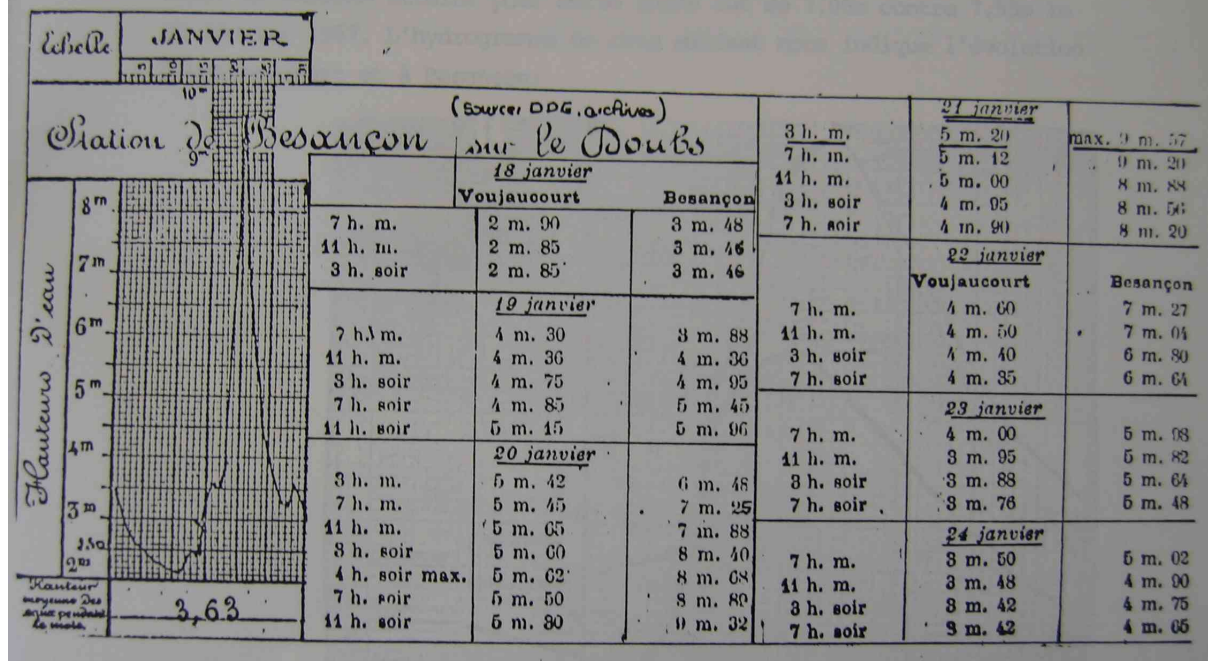 Echelle
JANVIER
10ᵐ
(Source: DDE. archives)
Station de Besançon sur le Doubs
9ᵐ
Hauteurs d'eau
8ᵐ
7ᵐ
6ᵐ
5ᵐ
4ᵐ
3ᵐ
2,50
2ᵐ
Hauteur
moyenne des
eaux pendant
le mois.
3,63
18 janvier
Voujaucourt Besançon
7 h. m. 2 m. 90 3 m. 48
11 h. m. 2 m. 85 3 m. 46
3 h. soir 2 m. 85 3 m. 46
19 janvier
7 h. m. 4 m. 30 3 m. 88
11 h. m. 4 m. 36 4 m. 36
3 h. soir 4 m. 75 4 m. 95
7 h. soir 4 m. 85 5 m. 45
11 h. soir 5 m. 15 5 m. 96
20 janvier
3 h. m. 5 m. 42 6 m. 48
7 h. m. 5 m. 45 7 m. 25
11 h. m. 5 m. 65 7 m. 88
3 h. soir 5 m. 60 8 m. 40
4 h. soir max. 5 m. 62 8 m. 68
7 h. soir 5 m. 50 8 m. 89
11 h. soir 5 m. 80 9 m. 32
21 janvier
3 h. m. 5 m. 20 max. 9 m. 57
7 h. m. 5 m. 12 9 m. 20
11 h. m. 5 m. 00 8 m. 88
3 h. soir 4 m. 95 8 m. 56
7 h. soir 4 m. 90 8 m. 20
22 janvier
Voujaucourt Besançon
7 h. m. 4 m. 60 7 m. 27
11 h. m. 4 m. 50 7 m. 04
3 h. soir 4 m. 40 6 m. 80
7 h. soir 4 m. 35 6 m. 64
23 janvier
7 h. m. 4 m. 00 5 m. 98
11 h. m. 3 m. 95 5 m. 82
3 h. soir 3 m. 88 5 m. 64
7 h. soir 3 m. 76 5 m. 48
24 janvier
7 h. m. 3 m. 50 5 m. 02
11 h. m. 3 m. 48 4 m. 90
3 h. soir 3 m. 42 4 m. 75
7 h. soir 3 m. 42 4 m. 65